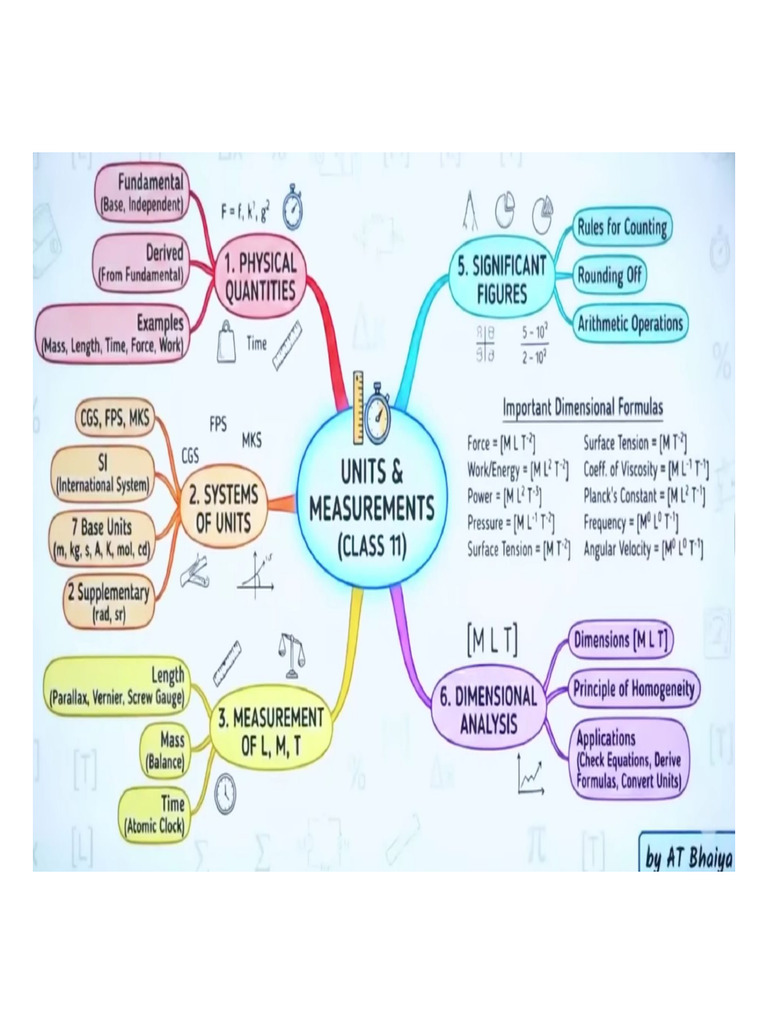 Fundamental
(Base, Independent)
Derived
(From Fundamental)
Examples
(Mass, Length, Time, Force, Work)
1. PHYSICAL
QUANTITIES
F = f, k', g²
Time
CGS, FPS, MKS
SI
(International System)
7 Base Units
(m, kg, s, A, K, mol, cd)
2 Supplementary
(rad, sr)
2. SYSTEMS
OF UNITS
FPS
MKS
CGS
Length
(Parallax, Vernier, Screw Gauge)
Mass
(Balance)
Time
(Atomic Clock)
3. MEASUREMENT
OF L, M, T
UNITS &
MEASUREMENTS
(CLASS 11)
5. SIGNIFICANT
FIGURES
Rules for Counting
Rounding Off
Arithmetic Operations
5 - 10²
2 - 10²
Important Dimensional Formulas
Force = [M L T⁻²]
Work/Energy = [M L² T⁻²]
Power = [M L² T⁻³]
Pressure = [M L⁻¹ T⁻²]
Surface Tension = [M T⁻²]
Surface Tension = [M T⁻²]
Coeff. of Viscosity = [M L⁻¹ T⁻¹]
Planck's Constant = [M L² T⁻¹]
Frequency = [M⁰ L⁰ T⁻¹]
Angular Velocity = [M⁰ L⁰ T⁻¹]
[M L T]
6. DIMENSIONAL
ANALYSIS
Dimensions [M L T]
Principle of Homogeneity
Applications
(Check Equations, Derive
Formulas, Convert Units)
[T]
[L]
Σ
Σ
π
[T]
[T]
%
%
Δx
by AT Bhaiya